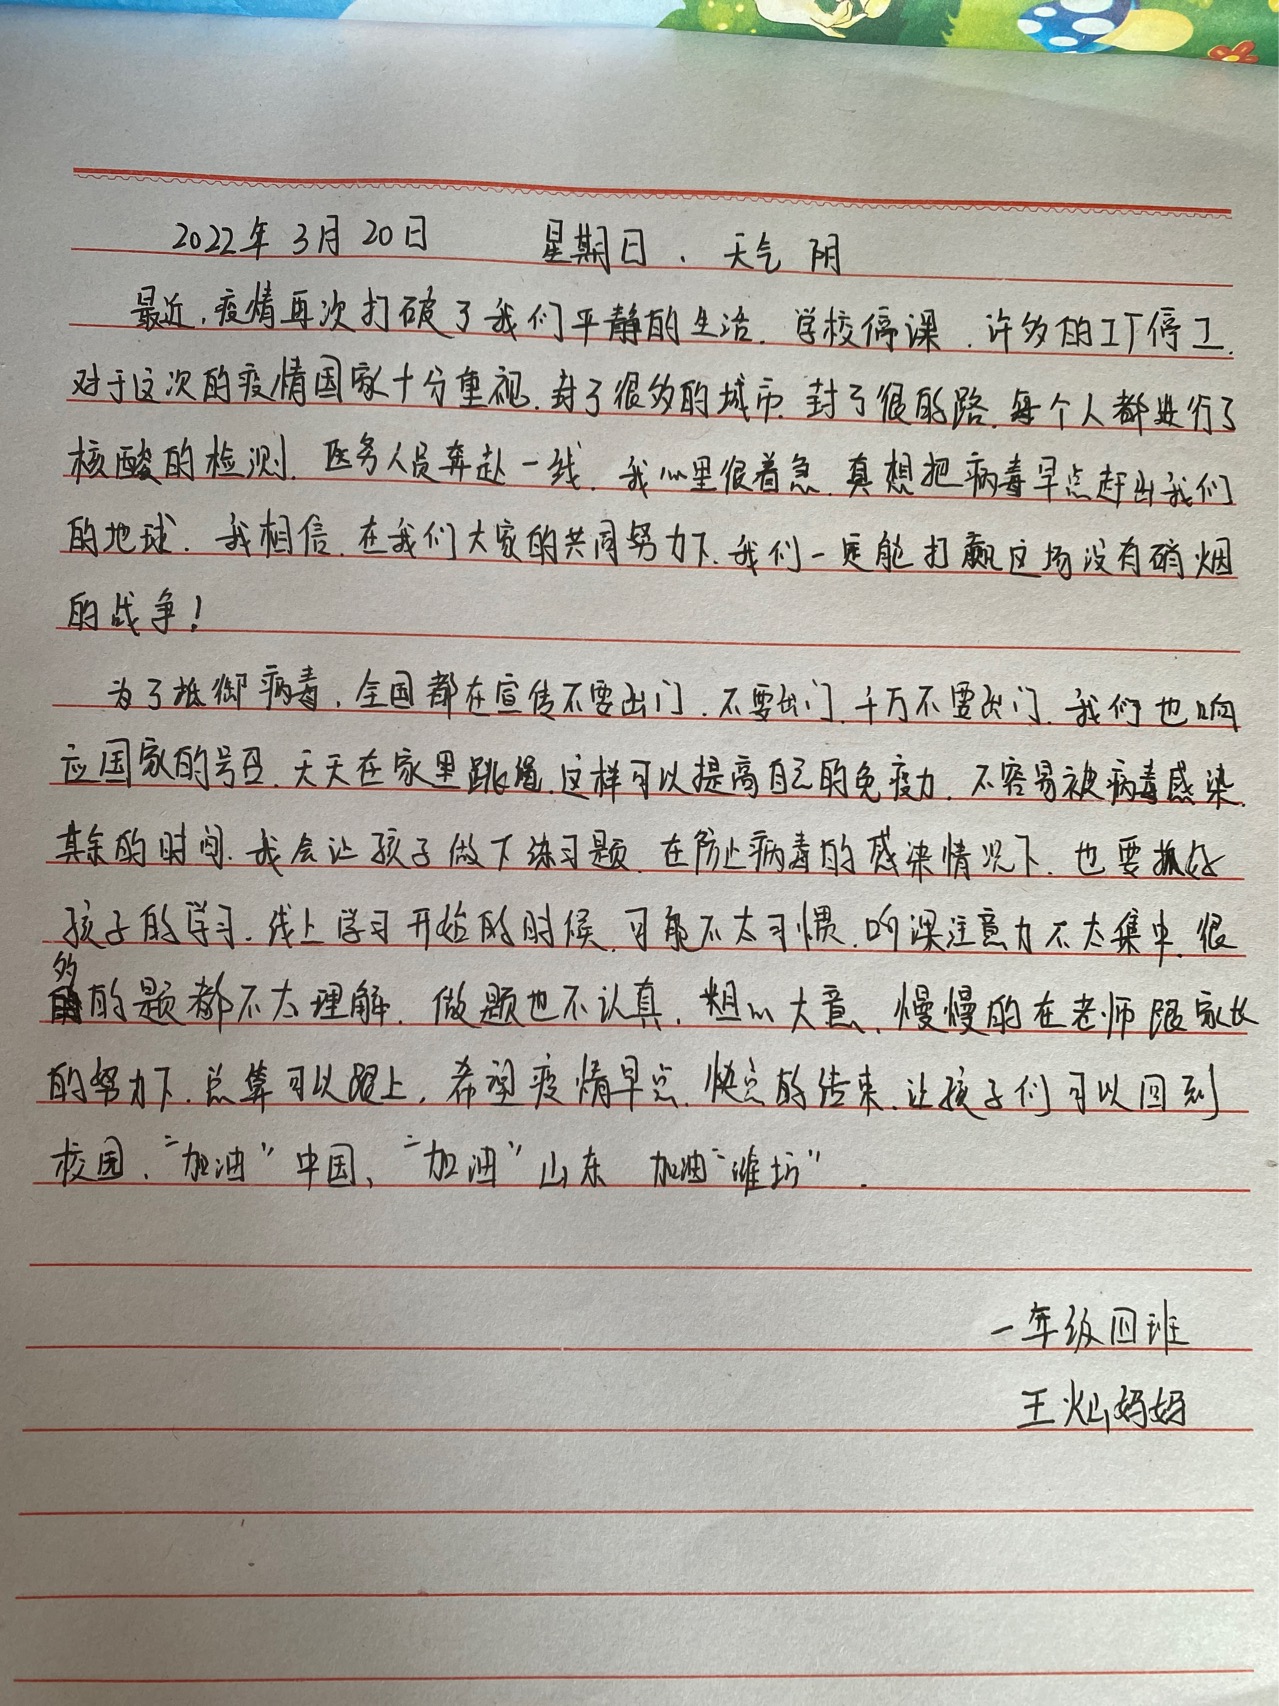 2022年3月20日 星期日. 天气 阴
最近,疫情再次打破了我们平静的生活.学校停课.许多的工厂停工.
对于这次的疫情国家十分重视.封了很多的城市.封了很的路.每个人都进行了
核酸的检测.医务人员奔赴一线.我心里很着急.真想把病毒早点赶出我们
的地球.我相信.在我们大家的共同努力下.我们一定能打赢这场没有硝烟
的战争!
为了抵御病毒,全国都在宣传不要出门.不要出门.千万不要出门.我们也响
应国家的号召.天天在家里跳绳.这样可以提高自己的免疫力.不容易被病毒感染.
其余的时间.我会让孩子做下练习题.在防止病毒的感染情况下.也要抓好
孩子的学习.线上学习开始的时候.可能不太习惯.听课注意力不太集中.很
多的题都不太理解.做题也不认真,粗心大意,慢慢的在老师跟家长
的努力下.总算可以跟上,希望疫情早点.快点的结束.让孩子们可以回到
校园,“加油”中国,“加油”山东 加油“潍坊”.
一年级四班
王灿妈妈